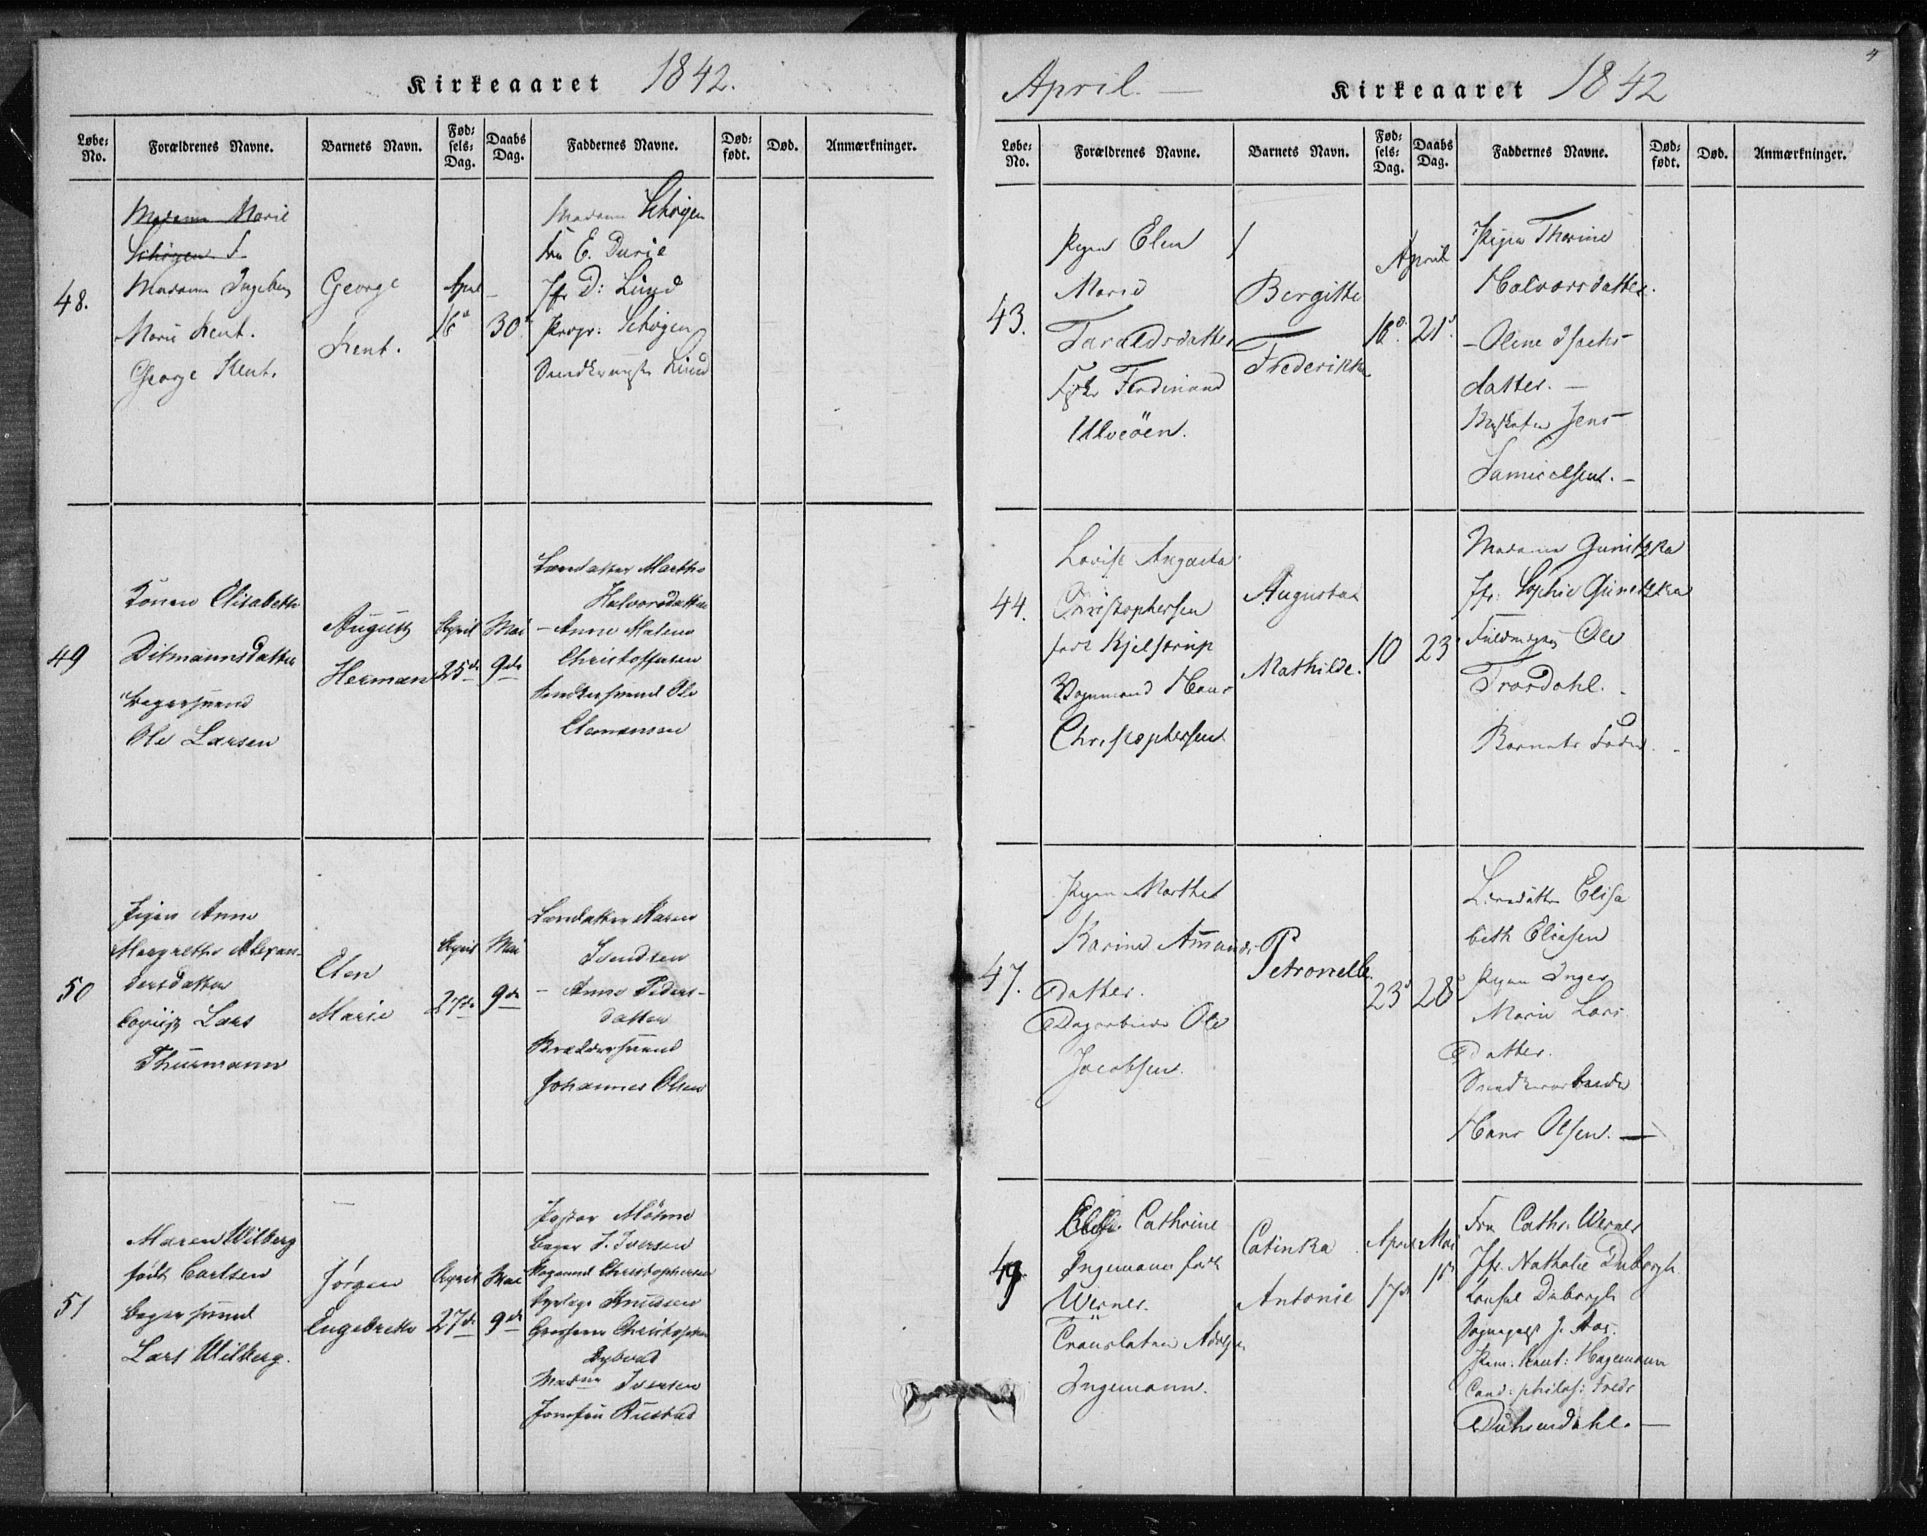 Kirkeaaret 1842.
Løbe-No. Forældrenes Navne. Barnets Navn. Fødsels-Dag. Daabs Dag. Faddernes Navne. Dødfødt. Død. Anmærkninger.
48.
Madame Marie
Schøgen f
Madame Ingeborg
Marie Kent.
George Kent.
George
Kent.
April
16de
30te
Madame Schøgen
Fru E. Durie
Jfr D: Lund
Propr: Schøgen
Snedkermester Lund
49
Konen Elisabeth
Ditmannsdatter
Bagersvend
Ole Larsen
August
Herman
April
25de
Mai
9de
Landatter Marthe
Halvorsdatter
– Anne Malene
Christoffersen
Snedkersvend Ole
Clemensen
50
Pigen Anne
Margrethe Alexan-
dersdatter
Copiist Lars
Thurmann
Elen
Marie
April
27de
Mai
9de
Landatter Maren
Svendsen
– Anne Peders-
datter
Johannes Olsen
51
Maren Wilberg
født Carlsen
Bagersvend
Lars Wilberg.
Jørgen
Engebreth
April
27de
Mai
9de
Pastor Møhne
Bager J. Iversen
Kogemd Christophersen
Knudsen
Christophersen
Dybvad
Madme Iversen
Jomfru Rustad
April. –
Kirkeaaret 1842
4
Løbe-No. Forældrenes Navne. Barnets Navn. Fødsels-Dag. Daabs Dag. Faddernes Navne. Dødfødt. Død. Anmærkninger.
43.
Pigen Elen
Marie
Taraldsdatter
Ferdinand
Ulveöen.
Bergitte
Frederikke
April
16de
21de
Pigen Thorine
Halvorsdatter.
– Oline Isachs-
datter. –
Jens
Samuelsen. –
44.
Lovise Augusta
Christophersen
født Kjelstrup
Vognmand Hans
Christophersen
Augusta
Mathilde.
10
23
Madame Gunitzka
Jfr: Sophie Gunitzka
Fuldmægtig Ole
Trosdahl.
Barnets Fader.
47.
Pigen Marthe
Karine Amunds-
Datter.
Dagarbeider Ole
Jacobsen.
Petronelle.
23de
28de
Landatter Elisa
beth Eliesen
Pigen Inger
Marie Lars
Datter.
Snedkerarbeider
Hans Olsen. –
49
Elise Cathrine
Ingemann født
Werner.
Translatør Adolph
Ingemann.
Catinka
Antonie
April
17de
Mai
1ste
Fru Cathr. Werner
Jfr. Nathalie Duborgh.
Konsul Duborgh
J. Aas.
Hagemann
Cand: philos: Fredr
Duhrendahl. –